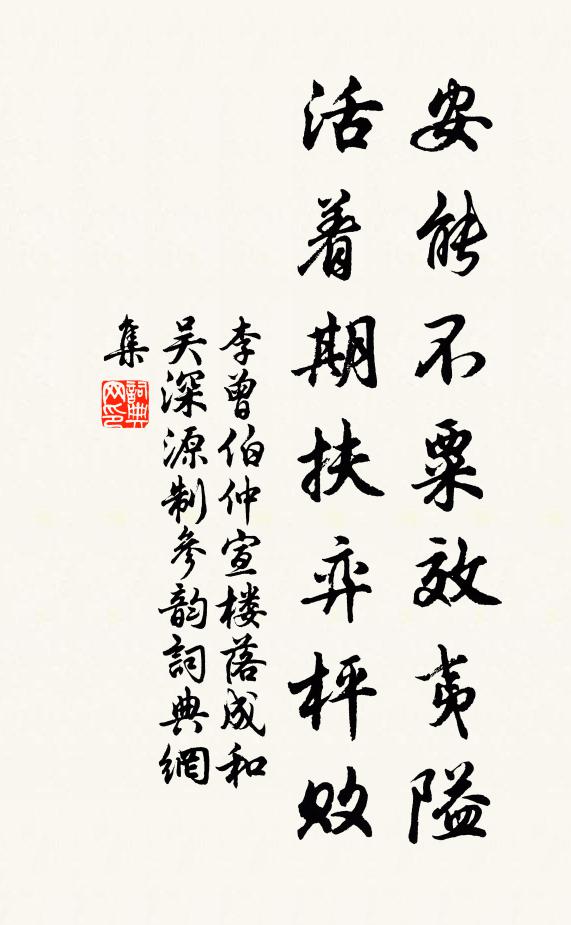 安能不粟效夷隘
活着期扶弈枰败
李曾伯仲宣楼落成和
吴深源制参韵詞典網
集
詞典网印